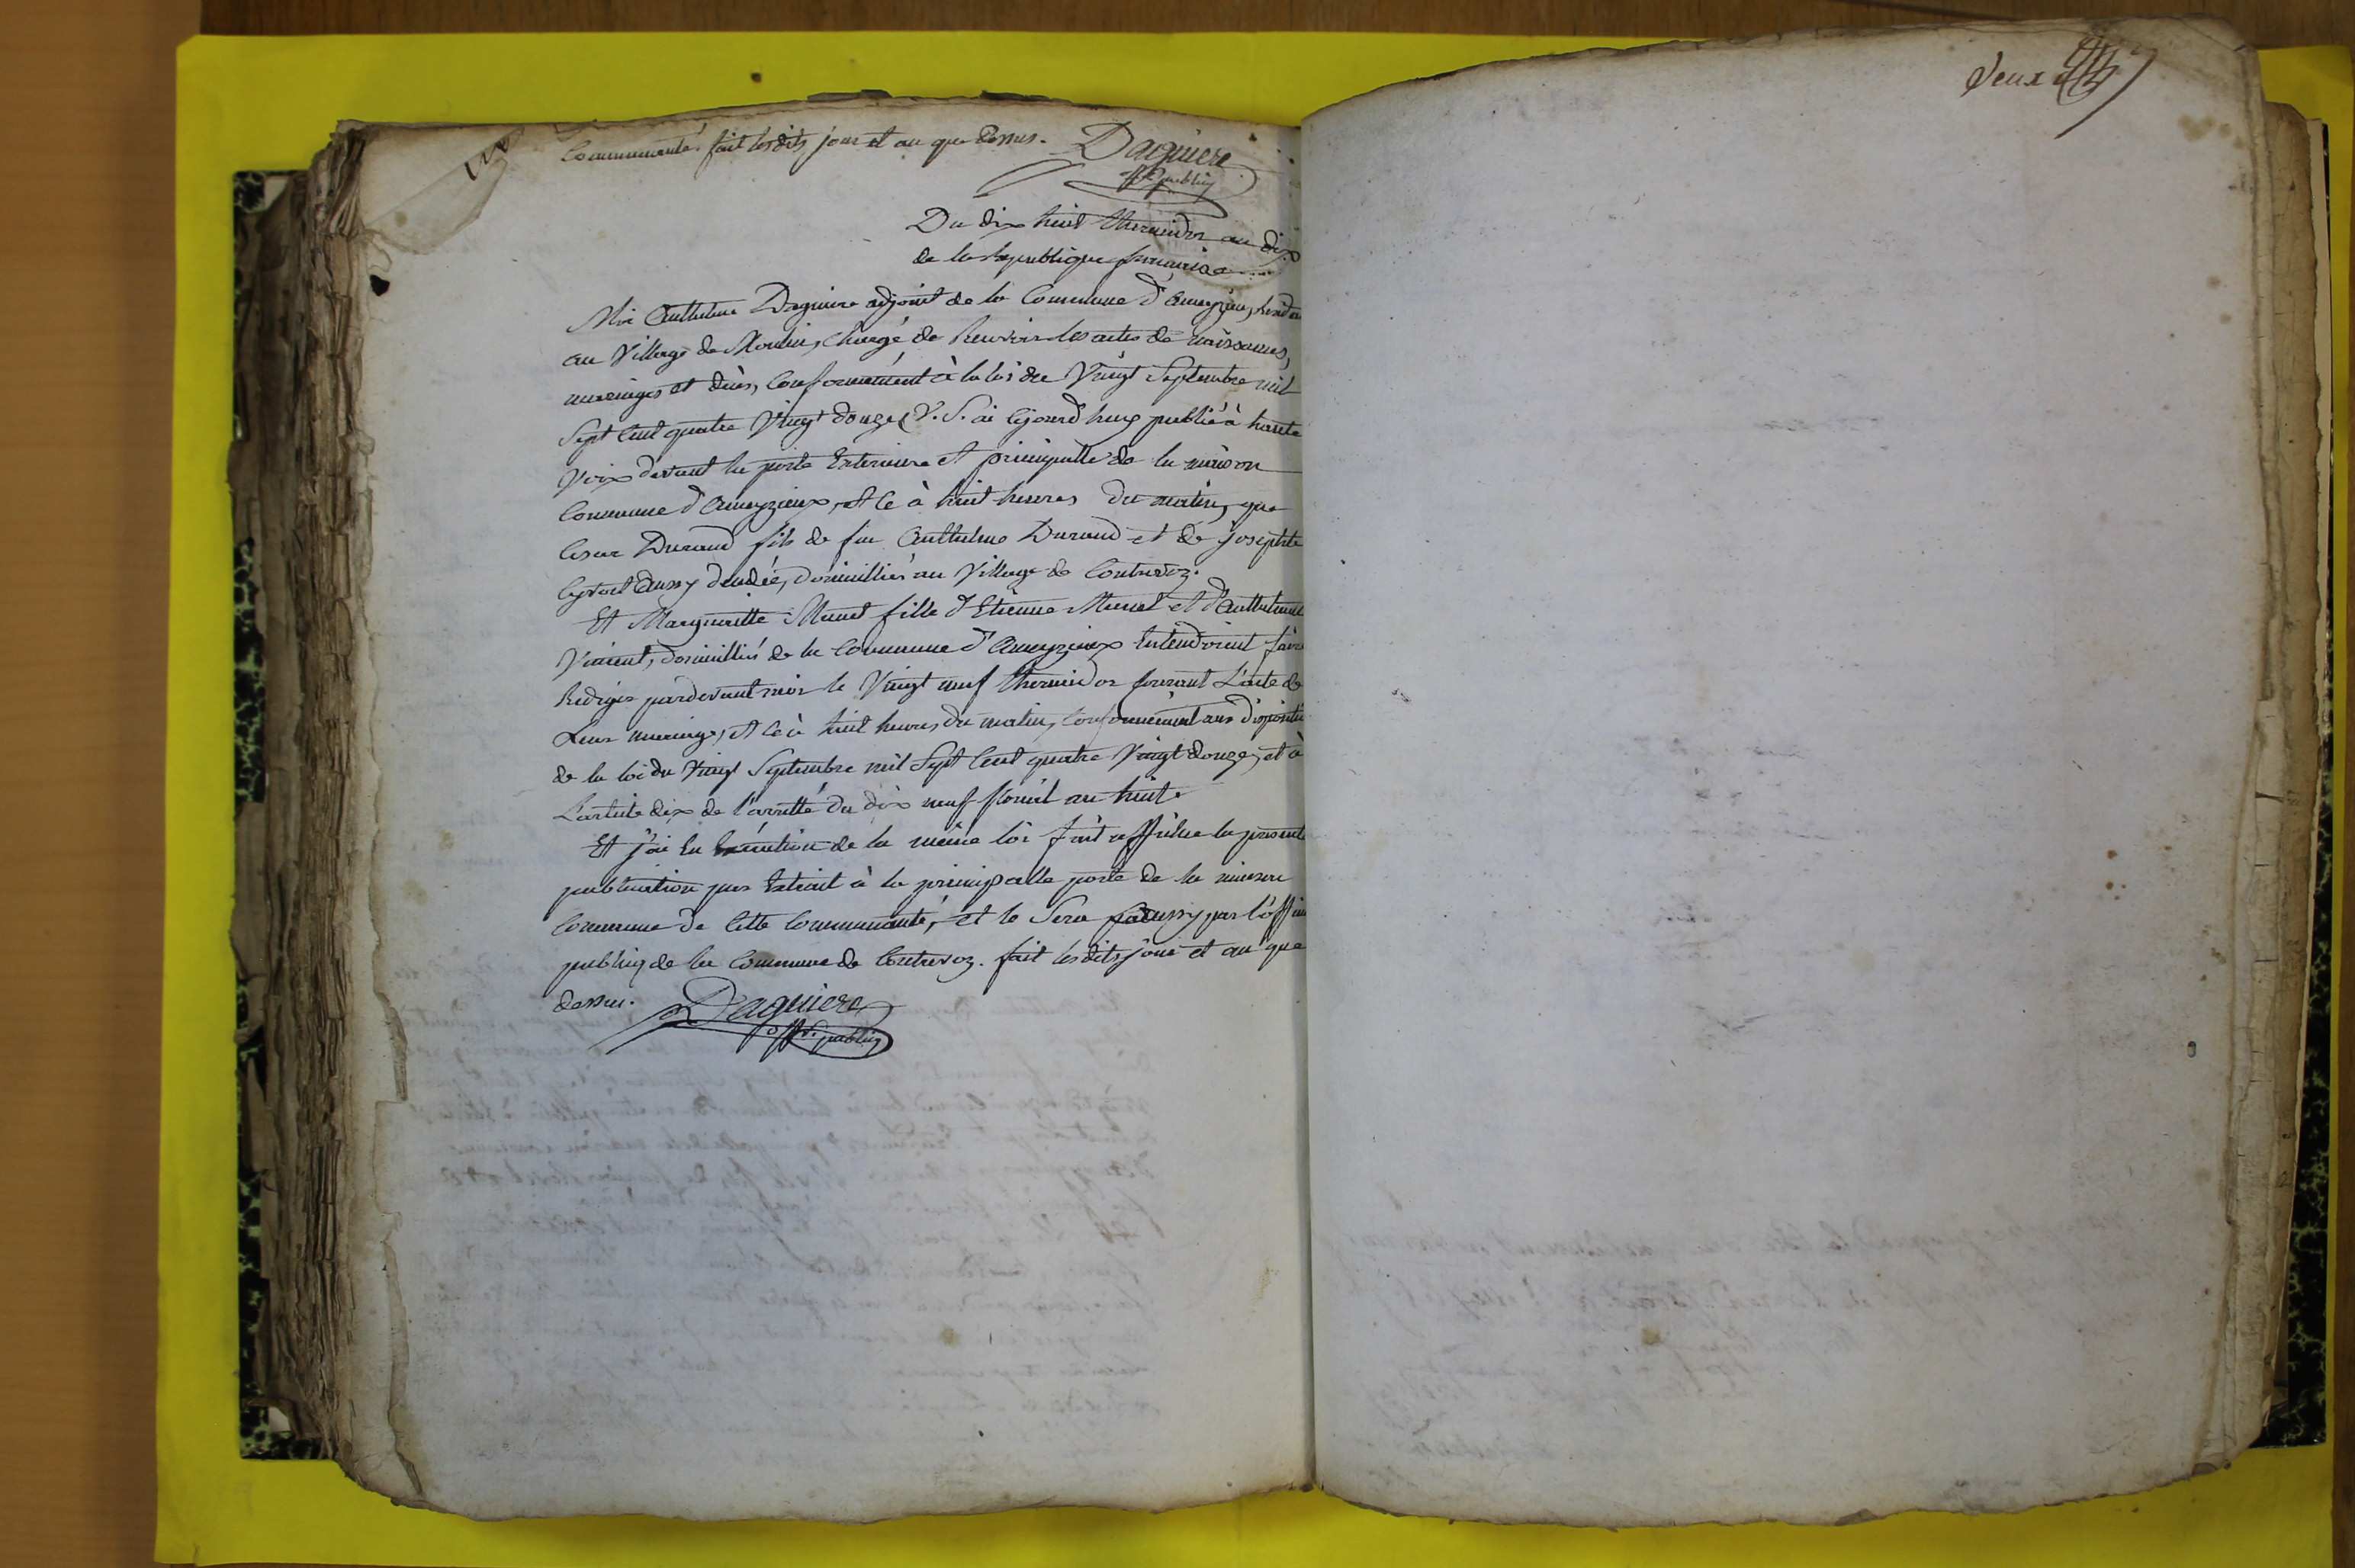 Communauté. fait lesdits jour et an que dessus. Daguiere
off. publiq
Du dix huit thermidor an dix
de la republique francaise
Moi Anthelme Daguiere adjoint de la Commune d'Ameyzieu,
au Village de Moulin, Chargé de Recevoir les actes de naissances,
mariages et décès, Conformément à la loi du Vingt Septembre mil
Sept Cent quatre Vingt douze V. S. ai Cejourd'huy publié à haute
Voix devant la porte Exterieure et principalle de la maison
Commune d'Ameyzieux, et Ce à huit heures du matin, que
Cesar Durand fils de feu Anthelme Durand et de josephte
aussy domicilliés au Village de Contrevoz.
Et Marguerite fille d'Etienne et d'Anthelmette
Vincent, domicilliés de la Commune d'Ameyzieux Entendoient faire
Rediger pardevant moi le Vingt neuf thermidor Courant L'acte de
Leur mariage, et Ce à huit heures du matin, Conformément aux
de la loi du Vingt Septembre mil Sept Cent quatre Vingt douze, et à
L'article dix de l'arretté du dix neuf floreal an huit.
Et j'ai En Execution de la même loi fait afficher la presente
publication par Extrait à la principalle porte de la maison
Commune de Cette Communauté, et le Sera aussy par l'offici
publiq de la Commune de Contrevoz. fait lesdits jour et an que
dessus. Daguiere
off. publiq
Deux